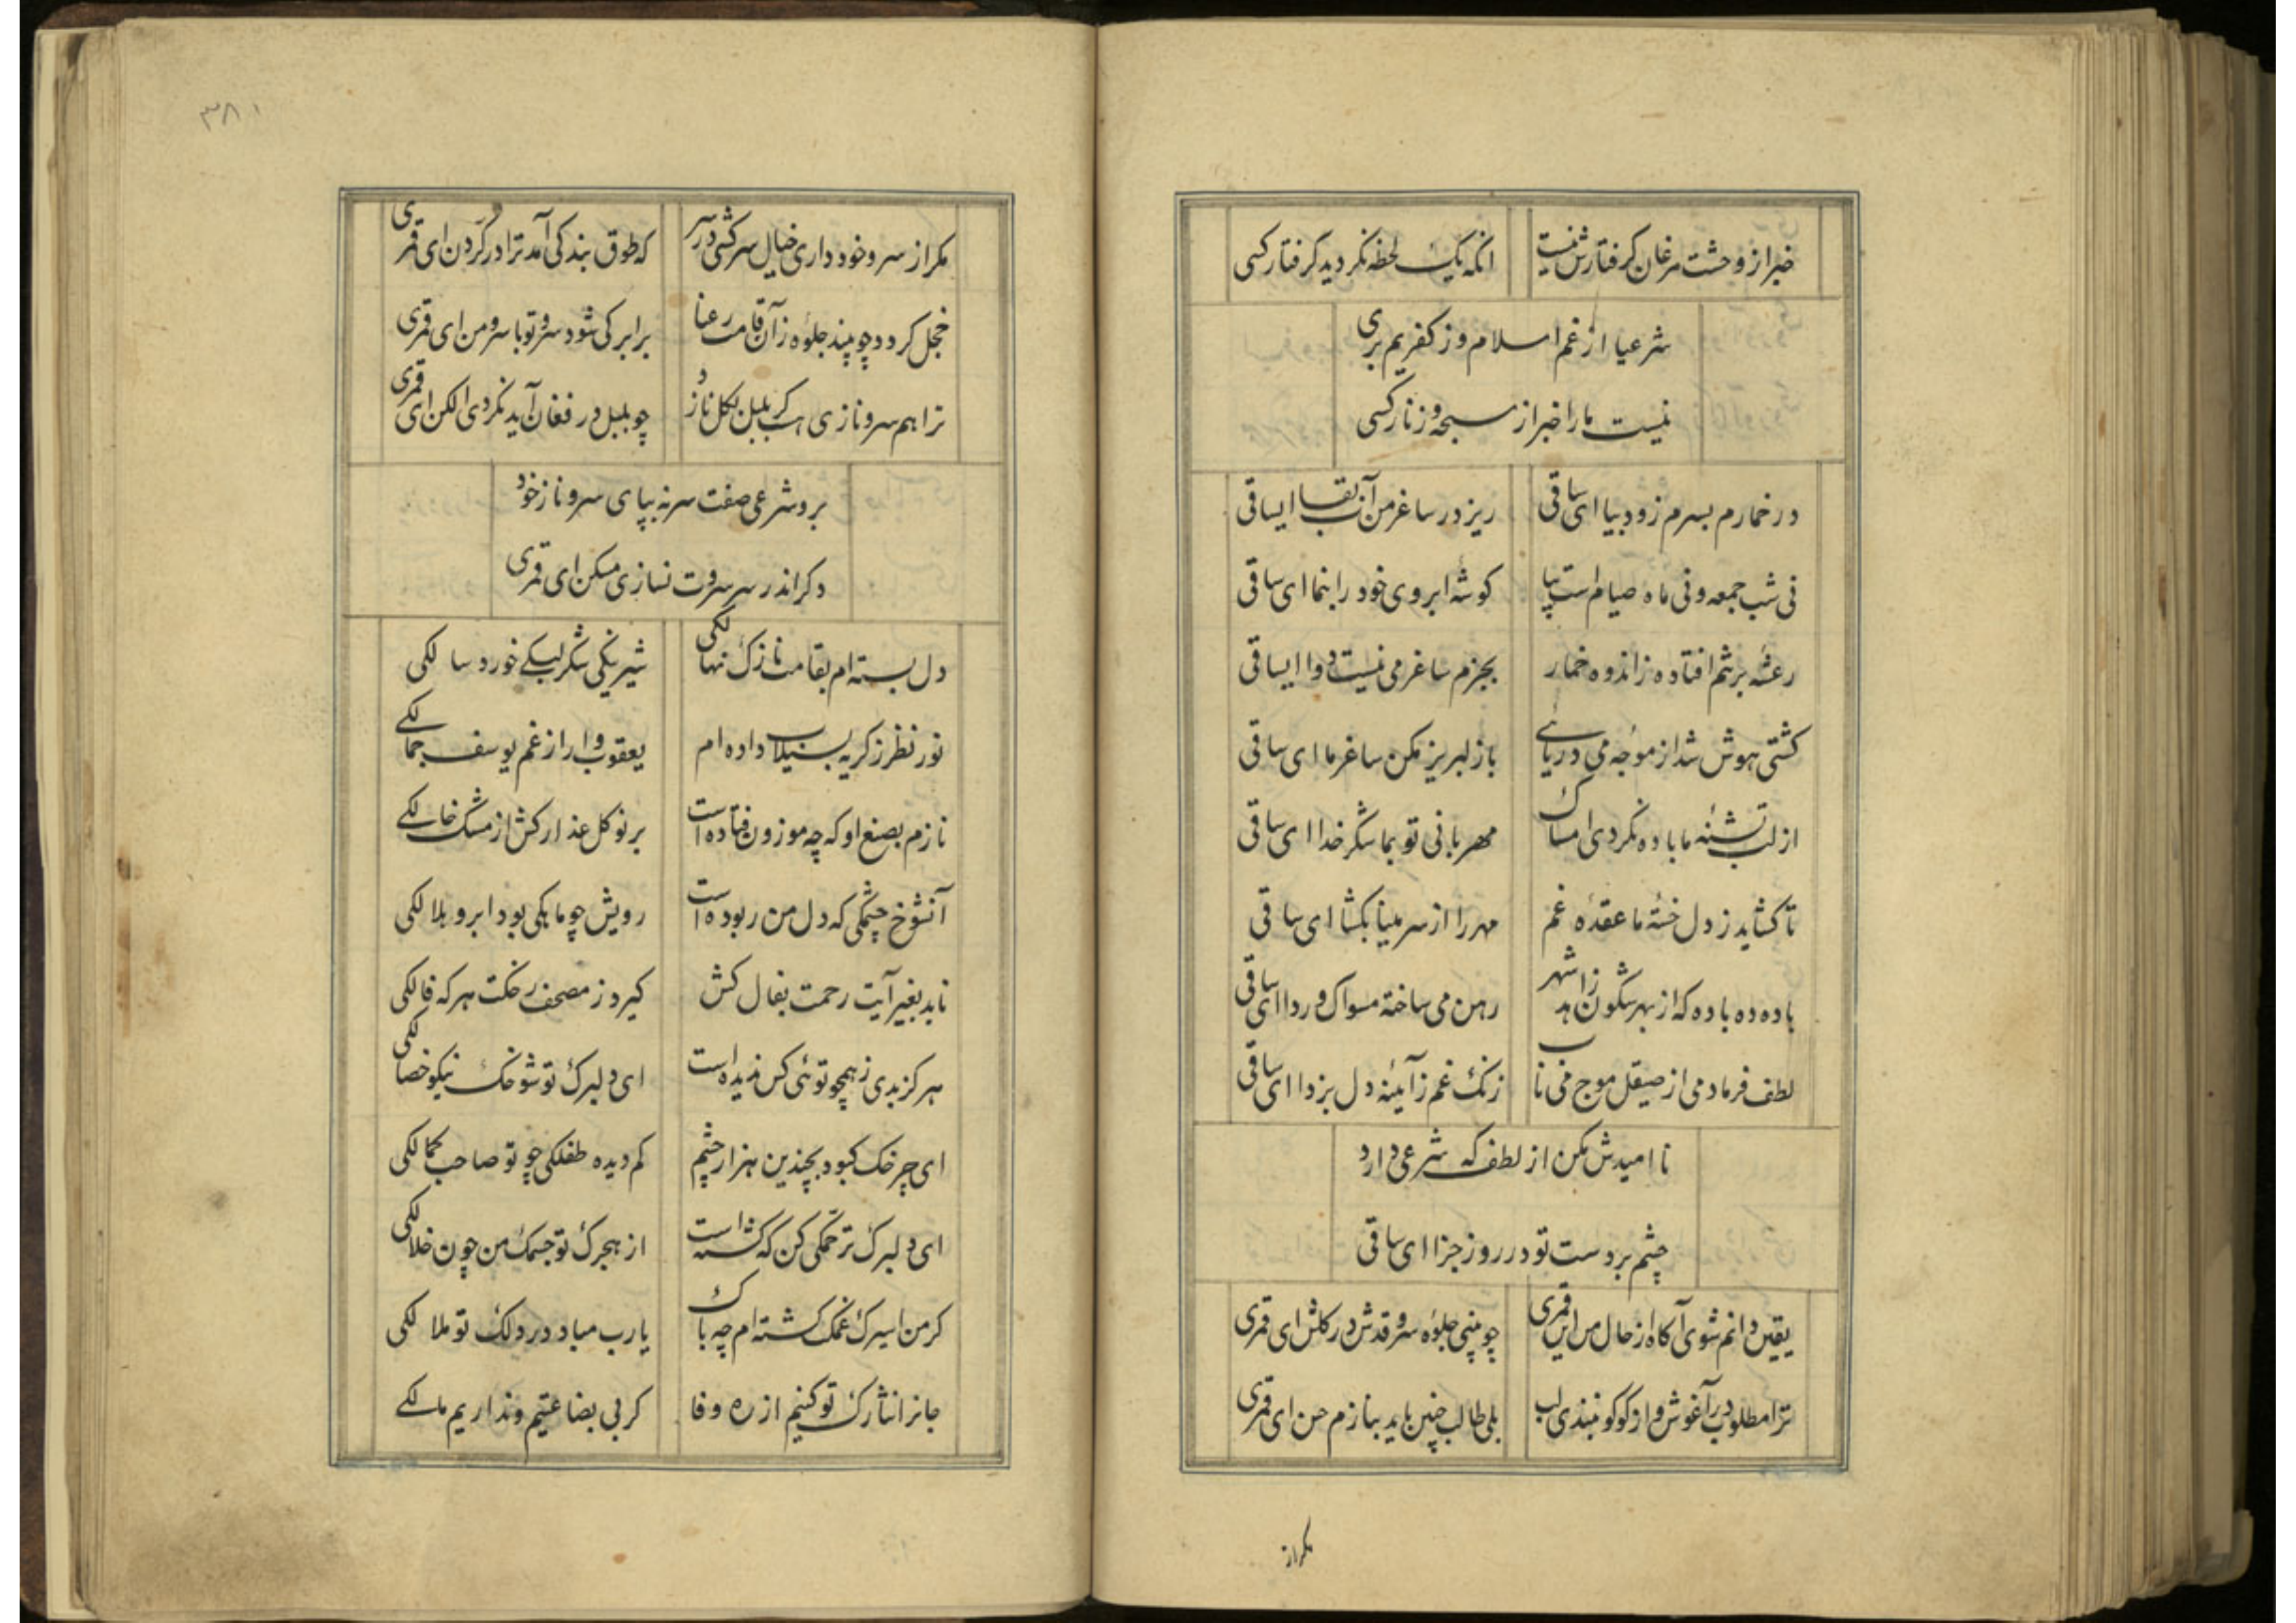 خبر از وحشت مرغان گرفتارش نیست    انکه یک لحظه نگردید گرفتار کسی
شرعیا از غم اسلام وز کفریم بری
نیست ما را خبر از سبحه و زنار کسی
در خمارم بسرم زود بیا ای ساقی    ریز در ساغر من آب بقا ایساقی
نی شب جمعه و نی ماه صیام است بیا    کوشه ابروی خود را بنما ای ساقی
رعشه برتنم افتاده ز اندوه خمار    بجزم ساغر می نیست دوا ایساقی
کشتی هوش شد از موجه می دریائے    باز لبریز مکن ساغر ما ای ساقی
از لب تشنه ما باده نکردی امساک    مهربانی تو بما شکر خدا ای ساقی
تا کشاید ز دل خسته ما عقدۀ غم    مهر را از سر مینا بکشا ای ساقی
باده ده باده که از بهر شکون زاهد شهر    رهن می ساخته مسواک و ردا ای ساقی
لطف فرما دمی از صیقل موج می ناب    زنک غم ز آئینه دل بزدا ای ساقی
نا امیدش مکن از لطف که شرعی دارد
چشم بر دست تو در روز جزا ای ساقی
یقین دانم شوی آکاه از حال من ای قمری    چو بینی جلوۀ سرو قدش در کلشن ای قمری
ترا مطلوب در آغوش و از کوکو نبندی لب    بلی طالب چنین باید بنازم حسن ای قمری
مکر از
۳۸۱
مکر از سرو خود داری خیال سرکشی در سر    که طوق بندکی آمد ترا در کردن ای قمری
خجل کردد چو بیند جلوه ز آن قامت رعنا    برابر کی شود سرو تو با سرو من ای قمری
ترا هم سرو نازی هست کر بلبل بکل نازد    چو بلبل در فغان آید نکردی الکن ای قمری
برو شرعی صفت سر نه بپای سرو ناز خود
دکر اندر سر سروت نسازی مسکن ای قمری
دل بسته ام بقامت نازک نهالکی    شیرینکی شکر لبکے خورد سالکی
نور نظر ز کریه بسیلاب داده ام    یعقوب وار از غم یوسف جمالکے
نازم بصنع او که چه موزون فتاده است    بر نو کل عذارکش از مشک خالکے
آنشوخ چشمکی که دل من ربوده است    رویش چو ماهکی بود ابرو هلالکی
ناید بغیر آیت رحمت بفال کش    کیرد ز مصحف رخکت هر که فالکی
هرکز بدی ز همچو توئی کس ندیده است    ای دلبرک تو شوخک نیکو خصالکی
ای چرخک کبود بچندین هزار چشم    کم دیده طفلکی چو تو صاحب کمالکی
ای دلبرک ترحمکی کن که کشته است    از هجرک تو جسمک من چون خلالکی
کر من اسیرک غمک کشته ام چه باک    یارب مباد در دلک تو ملالکی
جانرا نثارک تو کنیم از ره وفا    کر بی بضاعتیم و نداریم مالکے